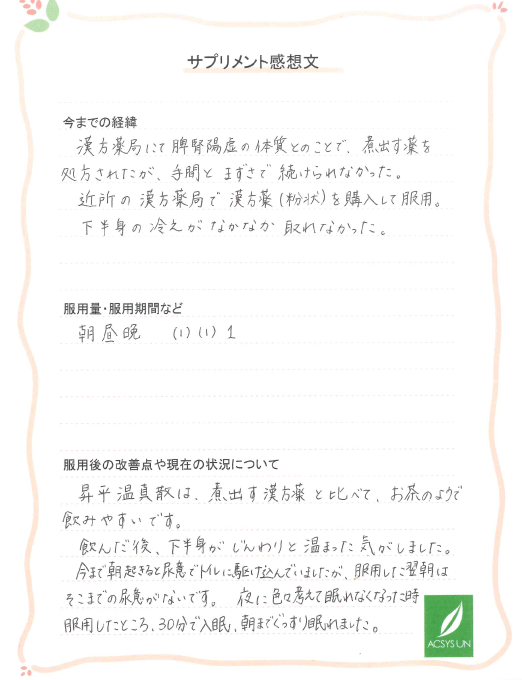 サプリメント感想文
今までの経緯
漢方薬局にて脾腎陽虚の体質とのことで、煮出す薬を
処方されたが、手間とまずさで続けられなかった。
近所の漢方薬局で漢方薬(粉状)を購入して服用。
下半身の冷えがなかなか取れなかった。
服用量・服用期間など
朝昼晩 (1) (1) 1
服用後の改善点や現在の状況について
昇平温真散は、煮出す漢方薬と比べて、お茶のようで
飲みやすいです。
飲んだ後、下半身がじんわりと温まった気がしました。
今まで朝起きると尿意でトイレに駆け込んでいましたが、服用した翌朝は
そこまでの尿意がないです。 夜に色々考えて眠れなくなった時
服用したところ、30分で入眠、朝までぐっすり眠れました。
ACSYS UN